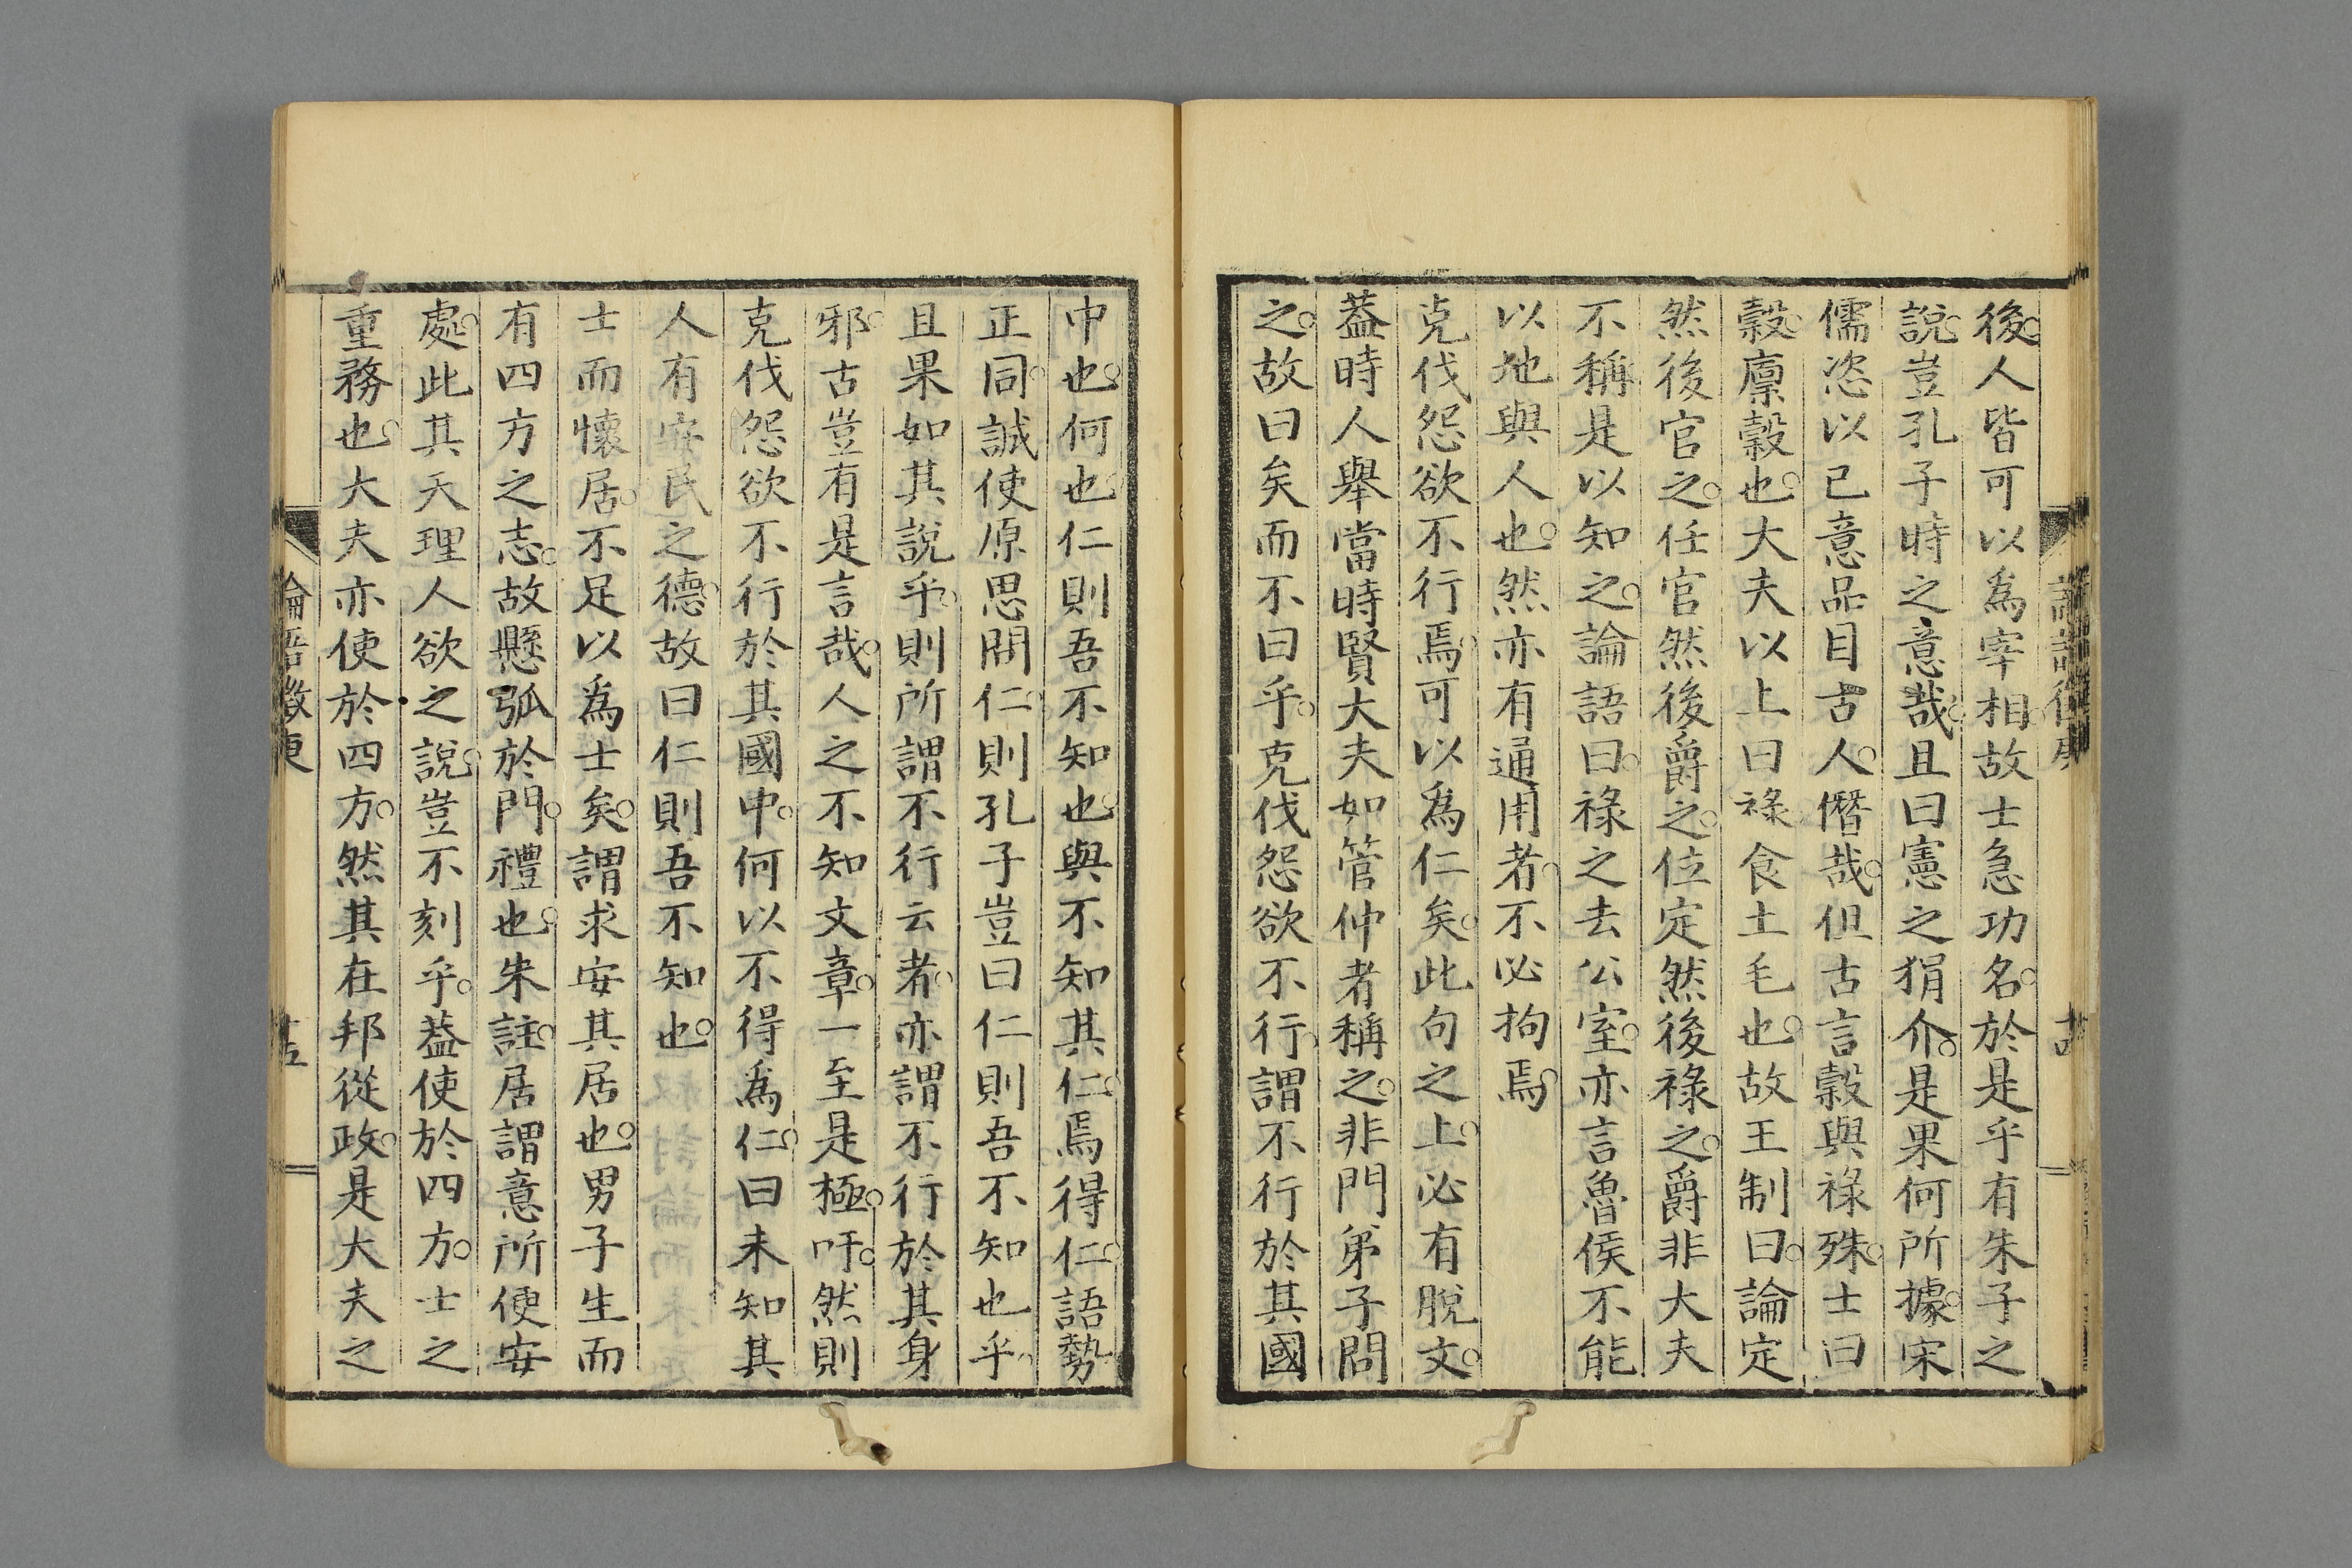 後人皆可以爲宰相故士急功名於是乎有朱子之
說豈孔子時之意哉且曰憲之狷介是果何所據宋
儒恣以己意品目古人僭哉但古言穀與祿殊士曰
穀廩穀也大夫以上曰祿食土毛也故王制曰論定
然後官之任官然後爵之位定然後祿之爵非大夫
不稱是以知之論語曰祿之去公室亦言魯侯不能
以地與人也然亦有通用者不必拘焉
克伐怨欲不行焉可以爲仁矣此句之上必有脫文
蓋時人舉當時賢大夫如管仲者稱之非門弟子問
之故曰矣而不曰乎克伐怨欲不行謂不行於其國
中也何也仁則吾不知也與不知其仁焉得仁語勢
正同誠使原思問仁則孔子豈曰仁則吾不知也乎
且果如其說乎則所謂不行云者亦謂不行於其身
邪古豈有是言哉人之不知文章一至是極吁然則
克伐怨欲不行於其國中何以不得爲仁曰未知其
人有安民之德故曰仁則吾不知也
士而懷居不足以爲士矣謂求安其居也男子生而
有四方之志故懸弧於門禮也朱註居謂意所便安
處此其天理人欲之說豈不刻乎蓋使於四方士之
重務也大夫亦使於四方然其在邦從政是大夫之